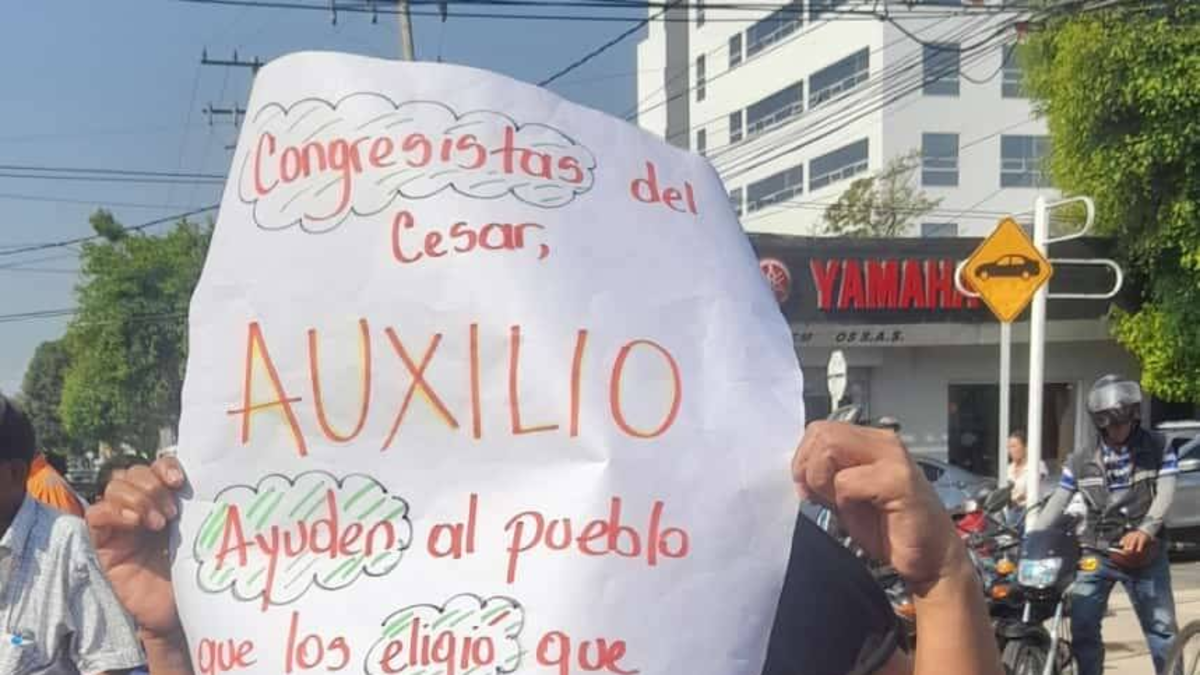 Congresistas del
Cesar,
AUXILIO
Ayuden al pueblo
que los eligio que
YAMAHA
OS S.A.S.